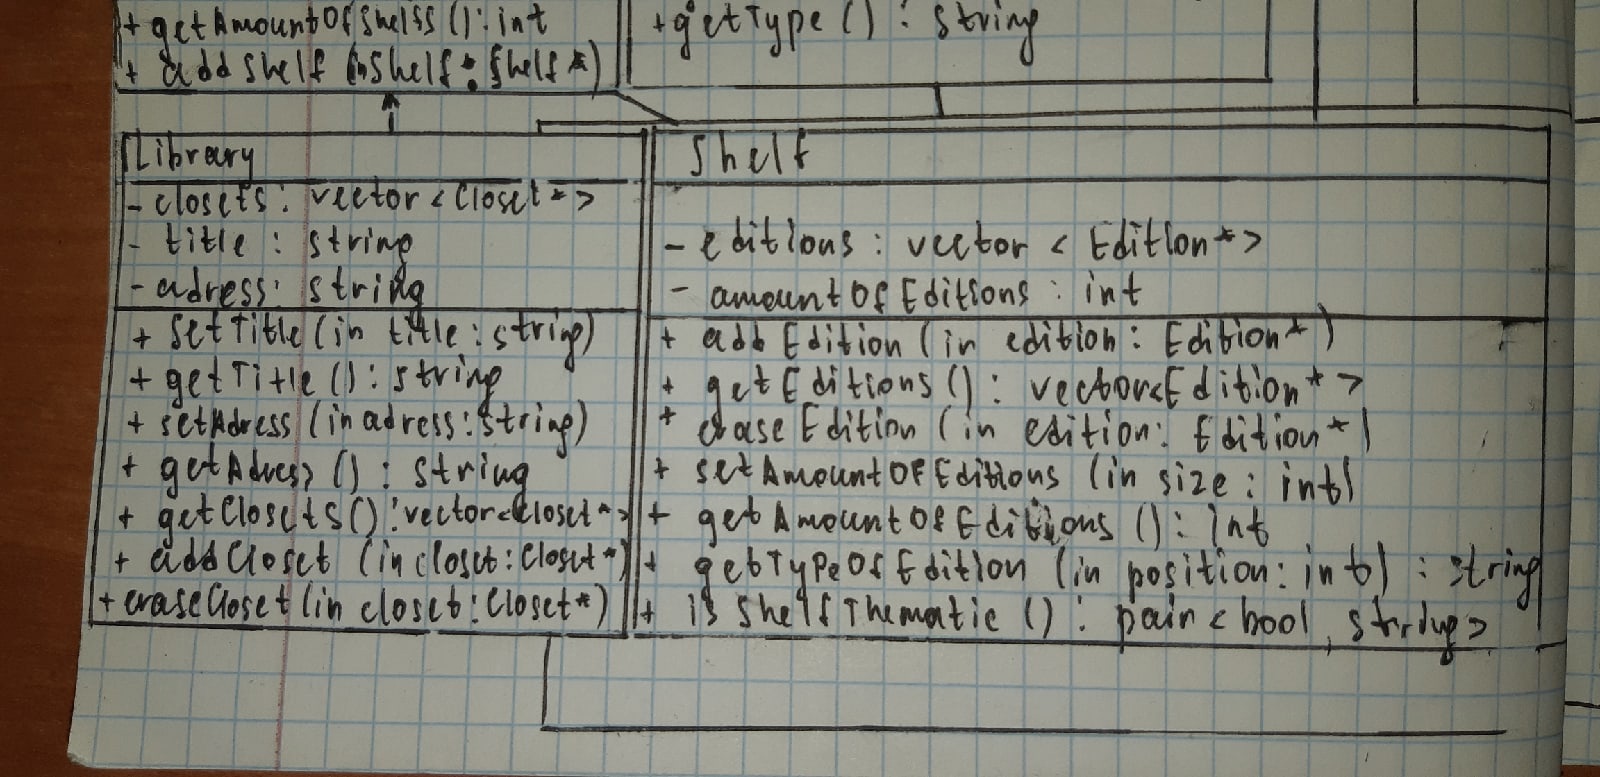 + getAmountOfShelfs (): int
+ addShelf (in shelf: Shelf*)
+ getType () : string
Library
- closets: vector < Closet * >
- title : string
- adress: string
+ setTitle (in title : string)
+ getTitle () : string
+ setAdress (in adress: string)
+ getAdress () : string
+ getClosets() : vector<Closet*>
+ addCloset (in closet: Closet*)
+ eraseCloset (in closet: Closet*)
Shelf
- editions : vector < Edition*>
- amountOfEditions : int
+ addEdition (in edition: Edition*)
+ getEditions () : vector<Edition* >
+ eraseEdition (in edition: Edition*)
+ setAmountOfEditions (in size: int)
+ getAmountOfEditions () : int
+ getTypeOfEdition (in position: int) : string
+ isShelfThematic () : pair < bool, string>